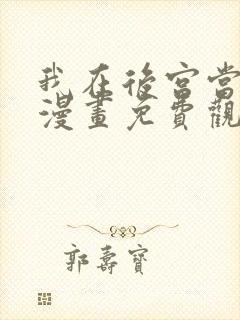 我在後宮當
漫畫免費觀
郭壽寶